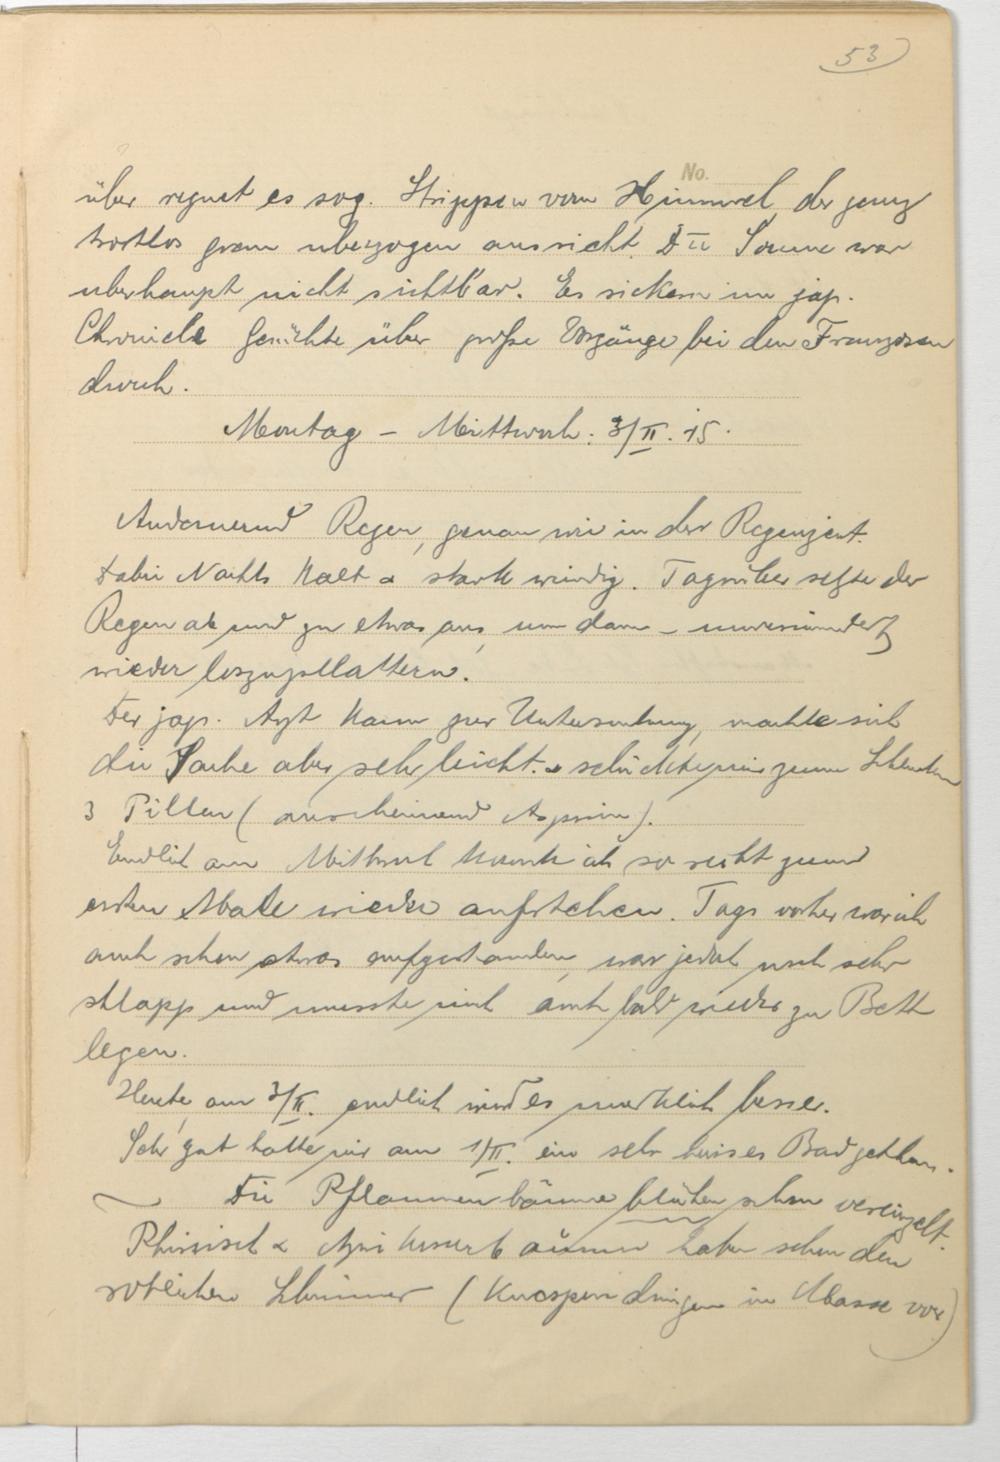 53
No.
über regnet es sog. Strippen vom Himmel, der ganz
trostlos grau uberzogen aussieht. Die Sonne war
uberhaupt nicht sichtbar. Es sickern im jap.
Chronicle Gerüchte über große Vorgänge bei den Franzosen
durch.
Montag – Mittwoch: 3/II. 15.
Andauernd Regen, genau wie in der Regenzeit.
Dabei Nachts kalt & stark windig. Tagsüber setzte der
Regen ab und zu etwas aus, um dann – unvermindert
wieder loszuplattern.
Der jap. Arzt kam zur Untersuchung, machte sich
die Sache aber sehr leicht. & schickte mir zum Schlucken
3 Pillen (anscheinend Aspirin).
Endlich am Mittwoch konnte ich so recht zum
ersten Male wieder aufstehen. Tags vorher war ich
auch schon etwas aufgestanden, war jedoch noch sehr
schlapp und musste mich auch bald wieder zu Bett
legen.
Heute, am 3/II. endlich wird es merklich besser.
Sehr gut hatte mir am 1/II. ein sehr heisses Bad gethan.
Die Pflaumenbäume blühen schon vereinzelt.
Pfirsich & Aprikosenbäume haben schon den
rötlichen Schimmer (Knospen dringen in Masse vor)